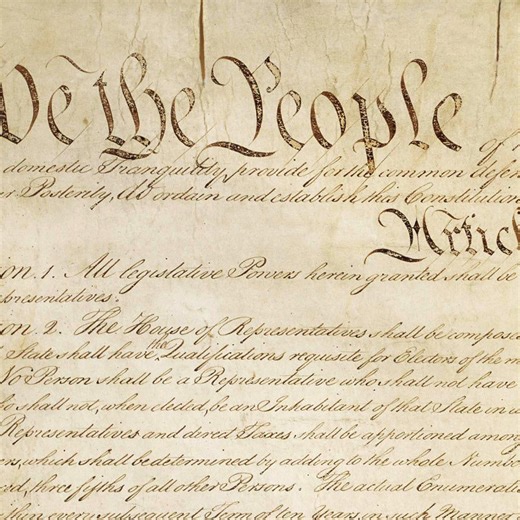 We the People of
domestic Tranquility, provide for the common defen
r Posterity, do ordain and establish this Constitution
Artic
ion. 1. All legislative Powers herein granted shall be
epresentatives.
on. 2. The House of Representatives shall be compose
State shall have the Qualifications requisite for Electors of the m
No Person shall be a Representative who shall not have
o shall not, when elected, be an Inhabitant of that State in w
Representatives and dered Taxes shall be apportioned among
ns, which shall be determined by adding to the whole Numbe
ed, three fifths of all other Persons. The actual Enumerati
thin every subsequent Term of ten Years, in such Manner